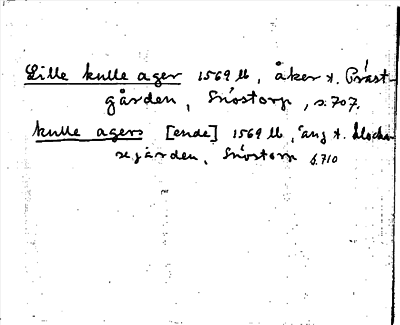 Lille kulle ager 1569 lb, åker t. Präst-
gården, Snöstorp, s. 707.
kulle agers [ende] 1569 lb, äng t. klocka-
regården, Snöstorp s. 710